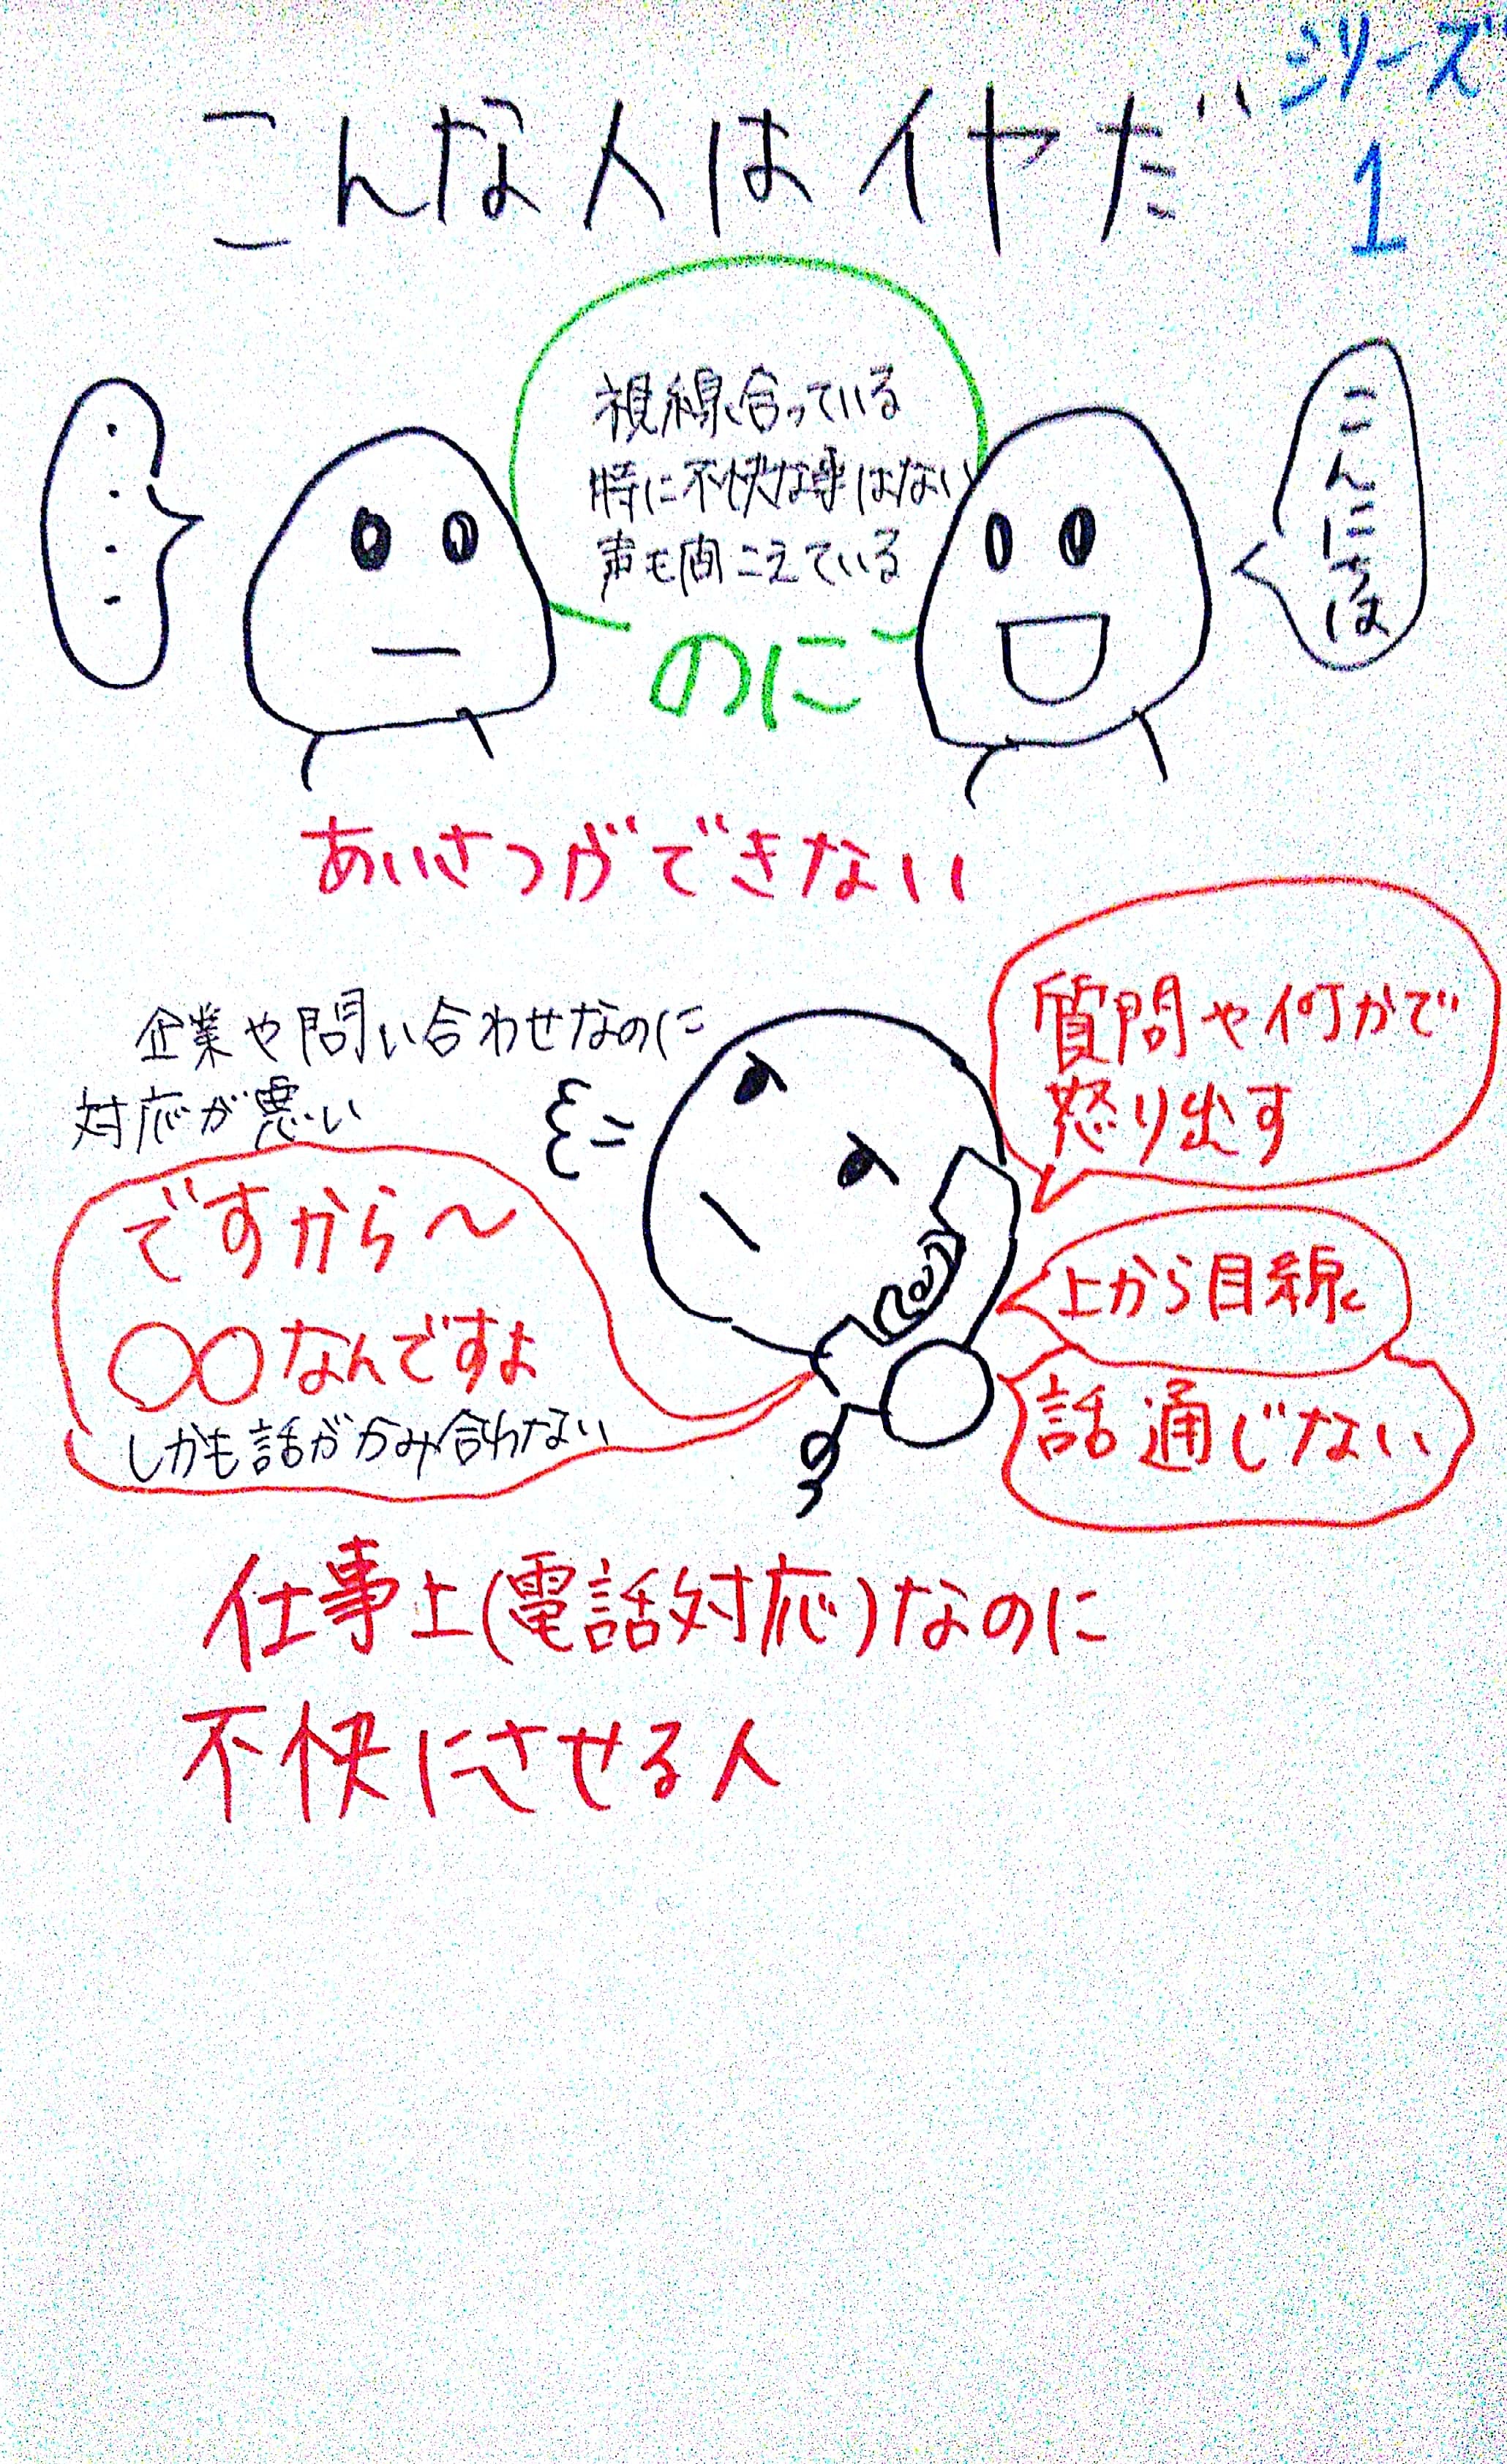 シリーズ
1
こんな人はイヤだ
視線合っている
時に不快な事はない
声も聞こえている
のに
こんにちは
・・・・
あいさつができない
企業や問い合わせなのに
対応が悪い
質問や何かで
怒り出す
ですから〜
〇〇なんですよ
しかも話がかみ合わない
上から目線
話通じない
仕事上(電話対応)なのに
不快にさせる人